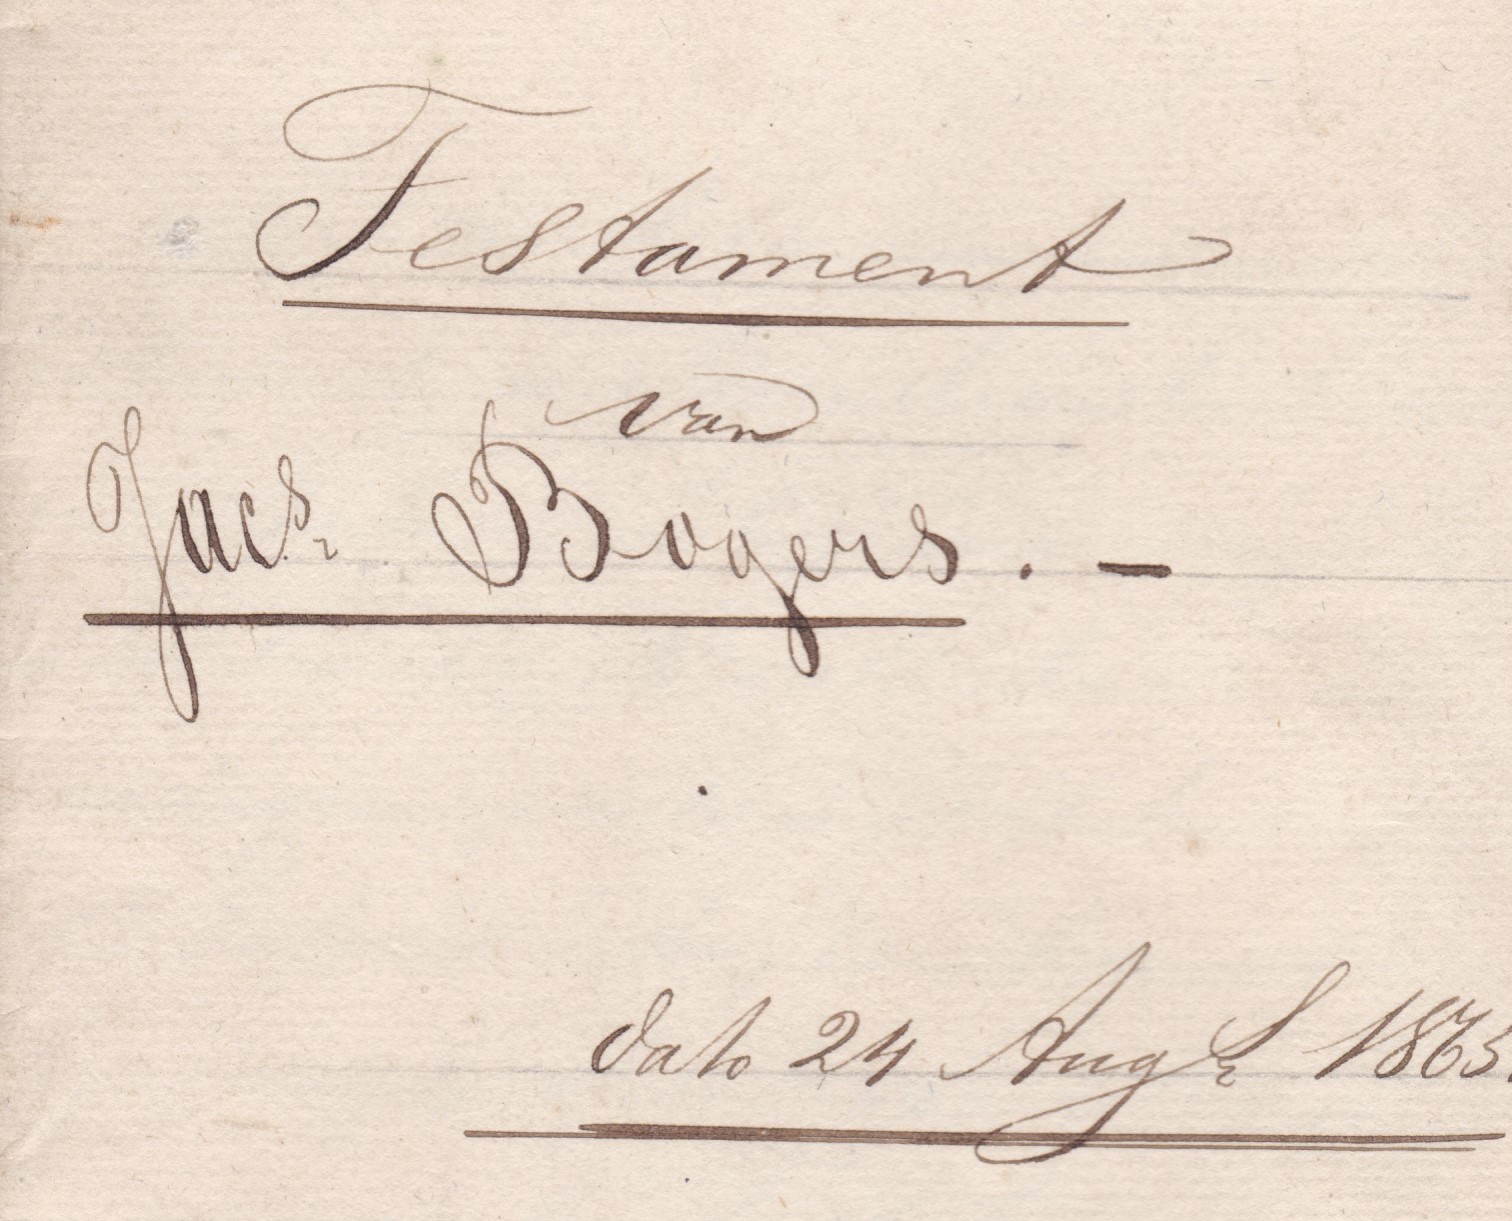 Testament
van
Jacs. Bogers. —
dato 24 Augs. 1863.